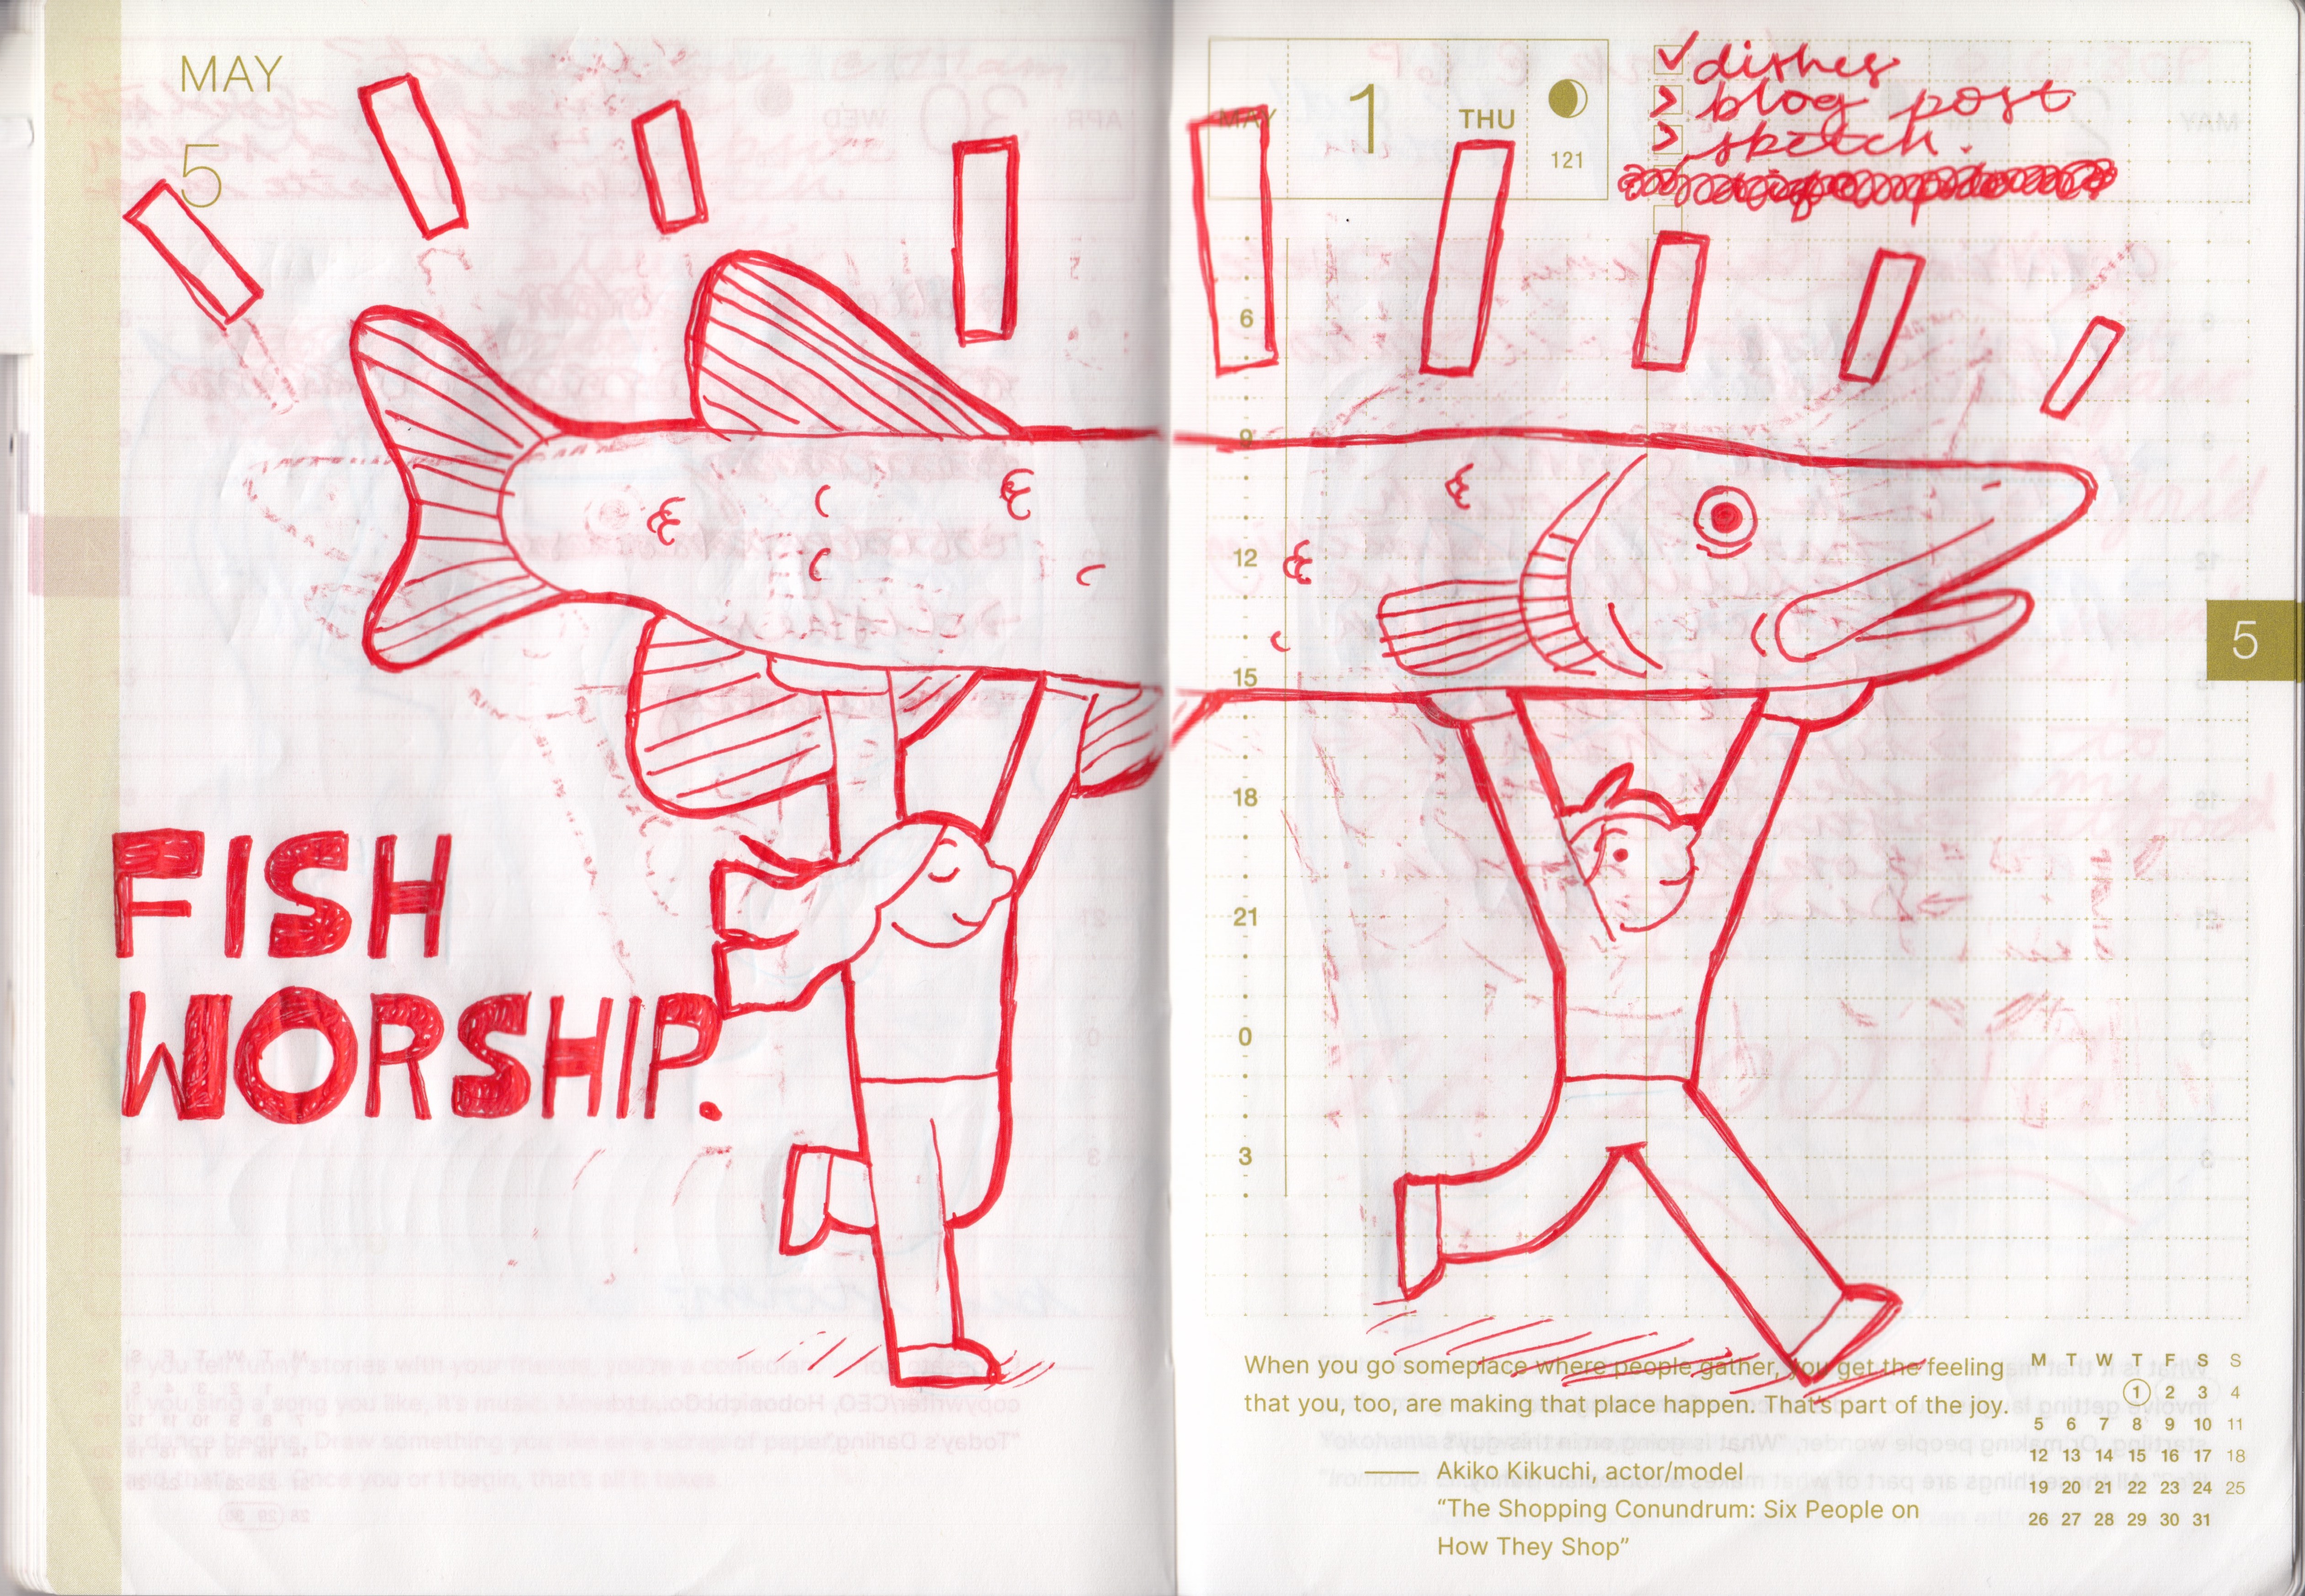 MAY
5
FISH
WORSHIP.
MAY 1 THU
121
dishes
blog post
sketch.
6
9
12
15
18
21
0
3
5
When you go someplace where people gather, you get the feeling
that you, too, are making that place happen. That's part of the joy.
Akiko Kikuchi, actor/model
"The Shopping Conundrum: Six People on
How They Shop"
M T W T F S S
1 2 3 4
5 6 7 8 9 10 11
12 13 14 15 16 17 18
19 20 21 22 23 24 25
26 27 28 29 30 31